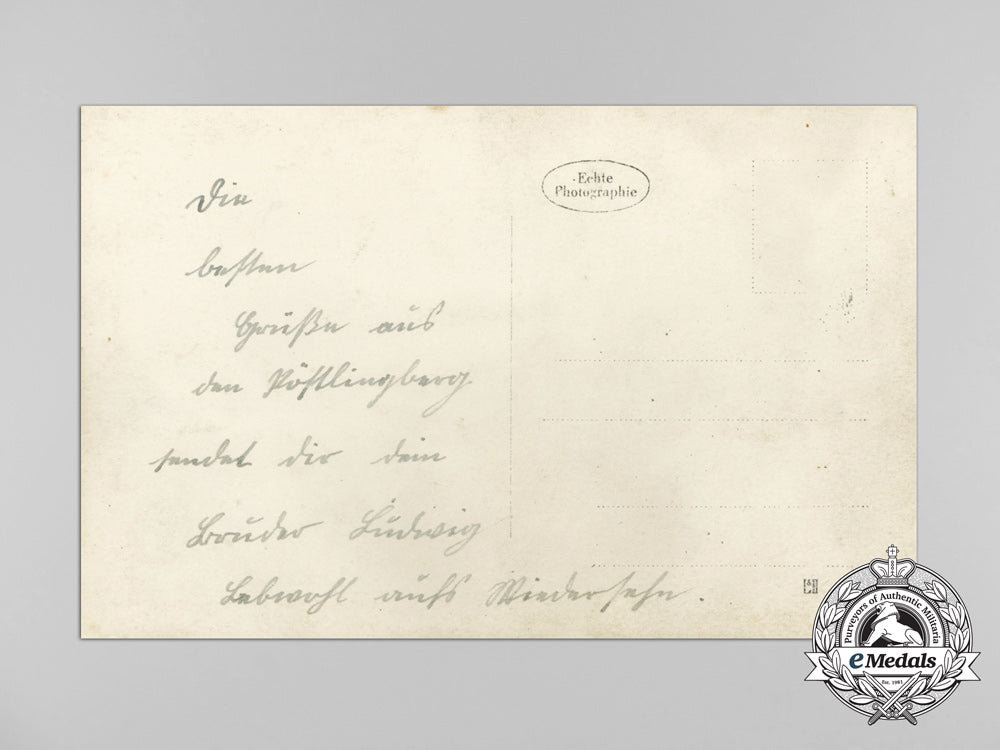 Die
besten
Grüße aus
den Pöstlingberg
sendet dir dein
Bruder Ludwig
Lebwohl aufs Wiedersehn.
Echte
Photographie
Purveyors of Authentic Militaria
eMedals
Est. 1981